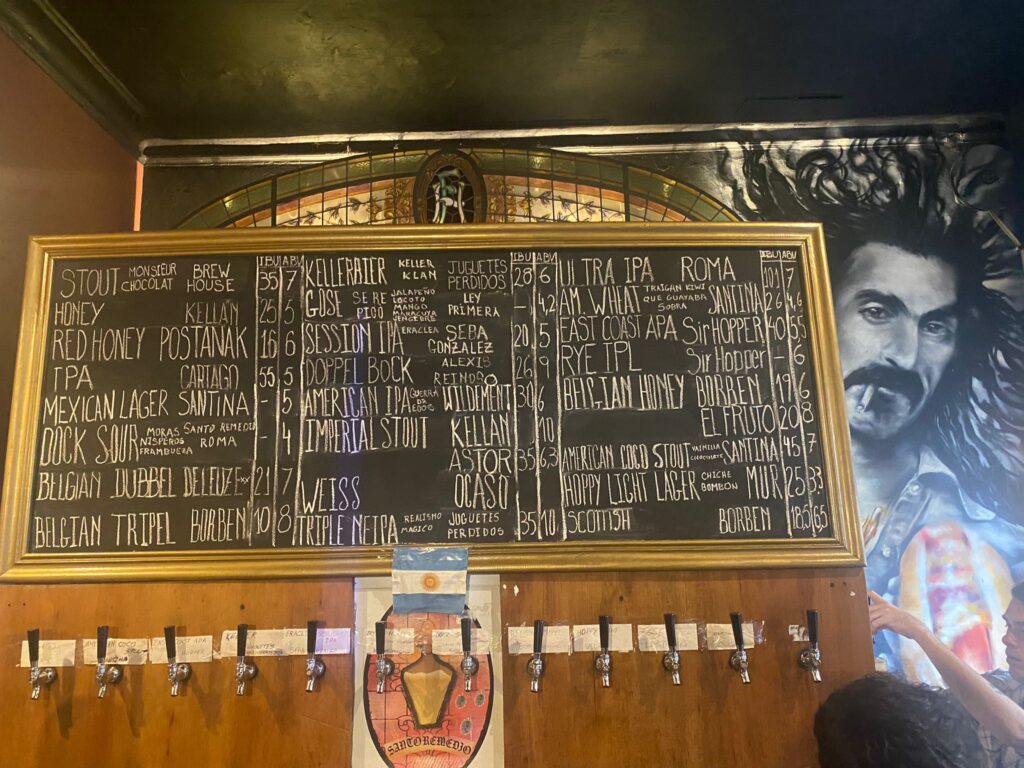 IBU ABV
STOUT MONSIEUR CHOCOLAT BREW HOUSE 35 7
HONEY KELLAN 25 5
RED HONEY POSTANAK 16 6
IPA CARTAGO 55 5
MEXICAN LAGER SANTINA - 5
DOCK SOUR MORAS NISPEROS FRAMBUERA SANTO REMEDIO ROMA - 4
BELGIAN DUBBEL DELEUZE 21 7
BELGIAN TRIPEL BORBEN 10 8
IBU ABV
KELLERBIER KELLER KLAN JUGUETES PERDIDOS 28 6
GOSE SERE PICO JALAPEÑO LOCOTO MANGO MARACUYA JENGIBRE LEY PRIMERA - 4,2
SESSION IPA ERACLEA SEBA GONZALEZ 20 5
DOPPEL BOCK ALEXIS REINOSO 26 9
AMERICAN IPA GUERRA DE EGOS WILDEMENT 30 6
IMPERIAL STOUT KELLAN 10
ASTOR 35 6,3
WEISS OCASO
TRIPLE NEIPA REALISMO MAGICO JUGUETES PERDIDOS 35 10
IBU ABV
ULTRA IPA ROMA 101 7
AM. WHEAT TRAIGAN KIWI QUE GUAYABA SOBRA SANTINA 26 4,6
EAST COAST APA Sir HOPPER 40 5,5
RYE IPL Sir HOPPER - 6
BELGIAN HONEY BORBEN 19 6
EL FRUTO 20 8
AMERICAN COCO STOUT SANTINA 45 7
HOPPY LIGHT LAGER CHICHE BOMBON MUR 25 3,3
SCOTTISH BORBEN 18,5 6,5
SANTO REMEDIO